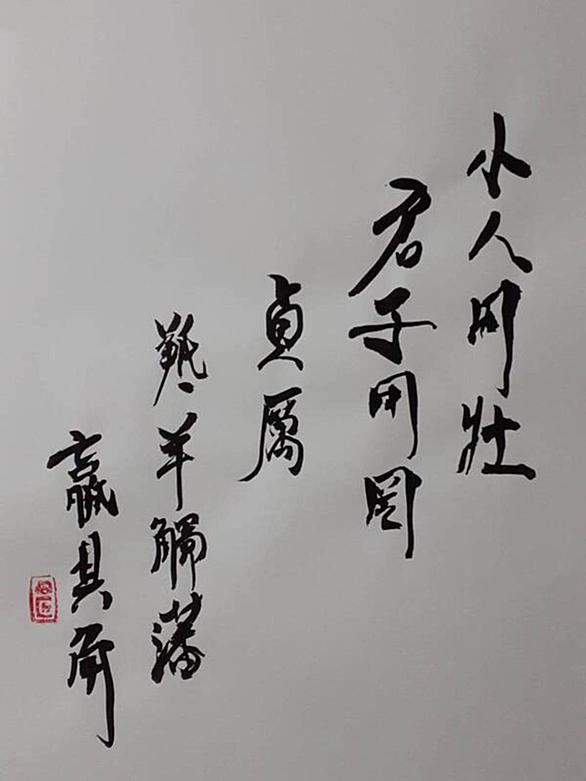 小人用壯
君子用罔
貞厲
羝羊觸藩
羸其角